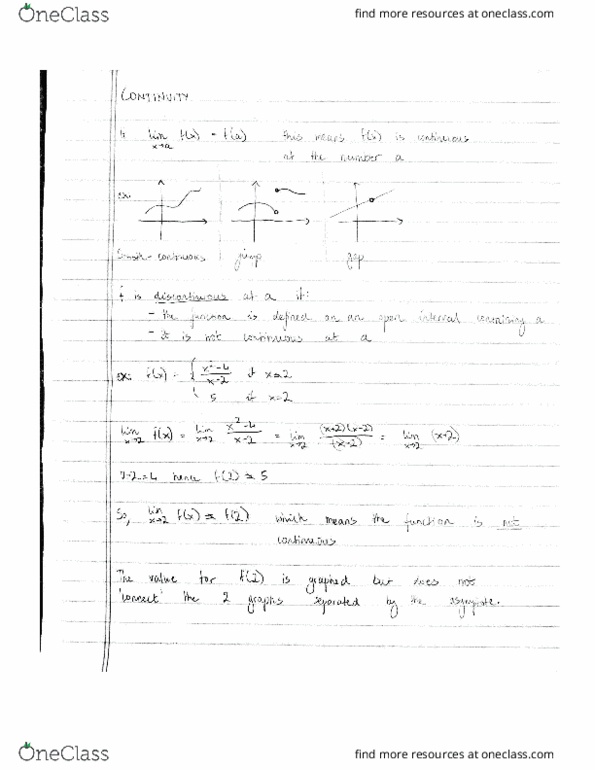 OneClass
find more resources at oneclass.com
CONTINUITY
If lim f(x) = f(a) this means f(x) is continuous
x→a
at the number a
ex:
continuous jump gap
f is discontinuous at a if:
- the function is defined on an open interval containing a
- it is not continuous at a
ex: f(x) = { x²-4 / x-2 if x≠2
5 if x=2
lim x→2 f(x) = lim x→2 x²-4 / x-2 = lim x→2 (x+2)(x-2) / (x-2) = lim x→2 (x+2)
2+2=4 hence f(2) = 5
So, lim x→2 f(x) ≠ f(2) which means the function is not
continuous
The value for f(2) is graphed but does not
'connect' the 2 graphs separated by the asymptote.
OneClass
find more resources at oneclass.com